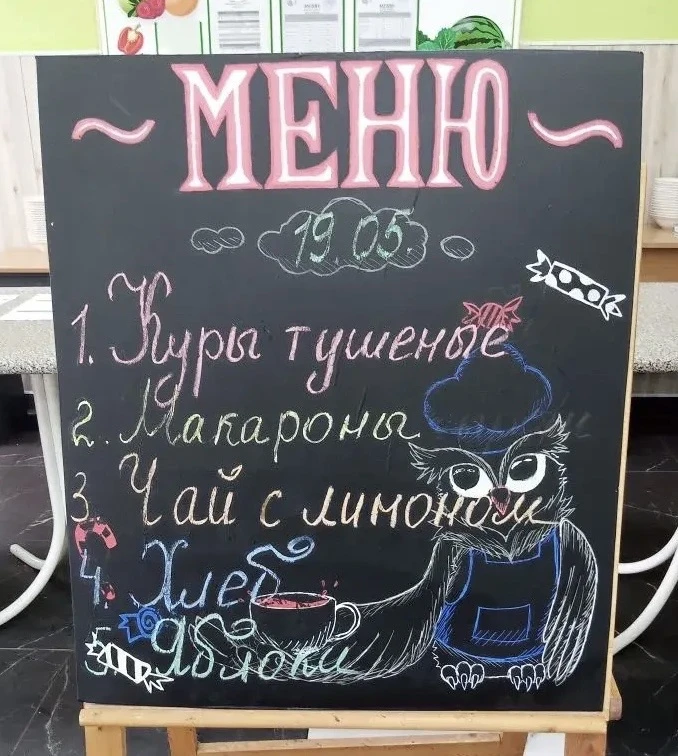 ~ МЕНЮ ~
19 05.
1. Куры тушеные
2. Макароны
3. Чай с лимоном
4. Хлеб
5. Яблоки